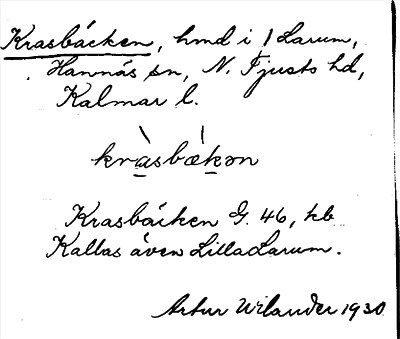 Krasbäcken, hmd i /Larum,
Hannäs sn, N. Tjusts hd,
Kalmar l.
kràsbækən
Krasbäcken G. 46, kb
Kallas även LillaLarum.
Artur Wilander 1930